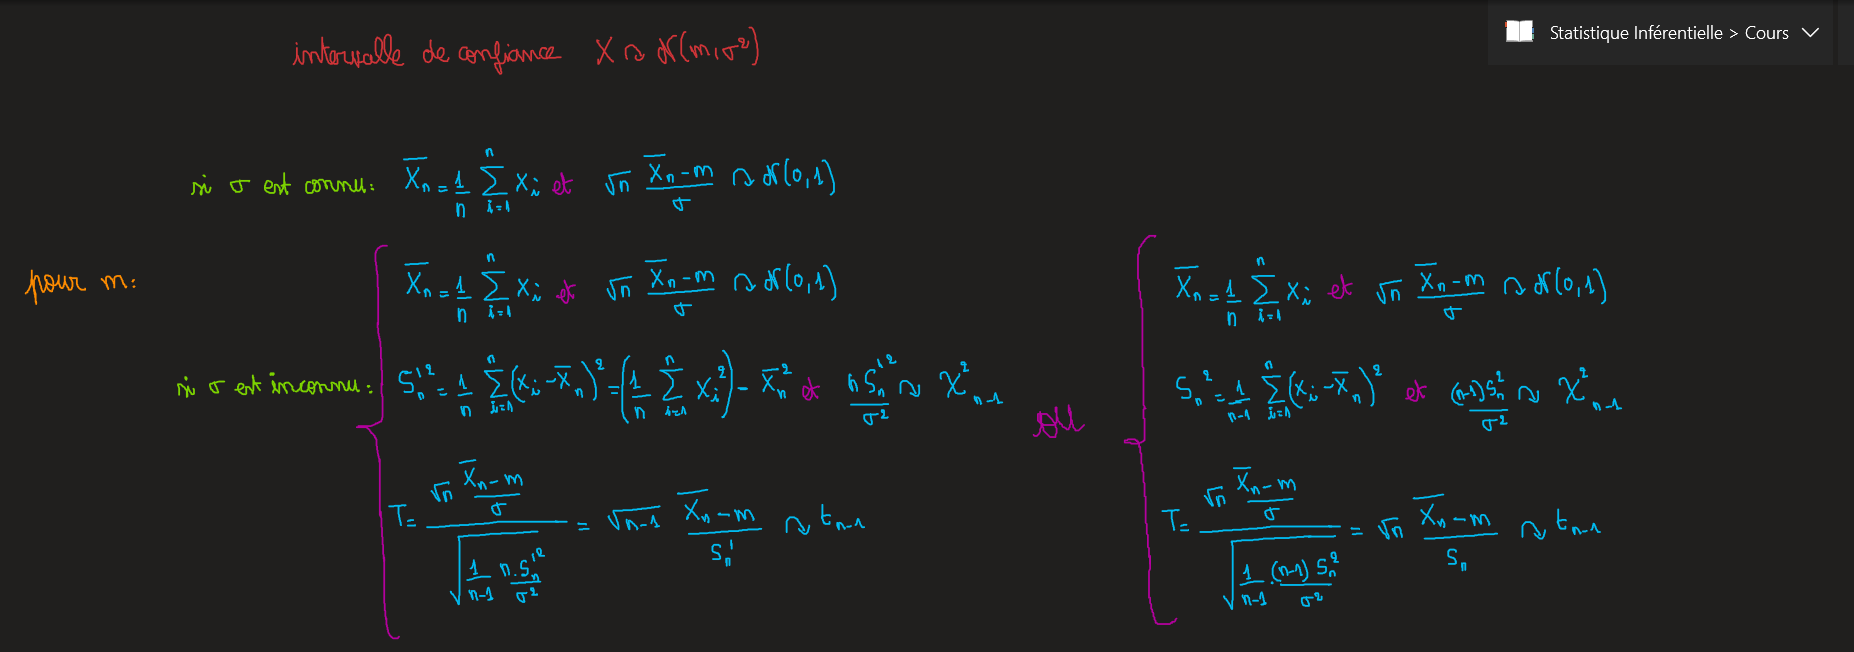 Statistique Inférentielle > Cours
intervalle de confiance X ↝ N(m, σ²)
si σ est connu: X̄ₙ = 1/n ∑ᵢ₌₁ⁿ Xᵢ et √n (X̄ₙ - m)/σ ↝ N(0,1)
pour m:
si σ est inconnu:
X̄ₙ = 1/n ∑ᵢ₌₁ⁿ Xᵢ et √n (X̄ₙ - m)/σ ↝ N(0,1)
Sₙ'² = 1/n ∑ᵢ₌₁ⁿ (Xᵢ - X̄ₙ)² = (1/n ∑ᵢ₌₁ⁿ Xᵢ²) - X̄ₙ² et n Sₙ'²/σ² ↝ χ²ₙ₋₁
T = (√n (X̄ₙ - m)/σ) / √(1/(n-1) · n.Sₙ'²/σ²) = √(n-1) (X̄ₙ - m)/Sₙ' ↝ tₙ₋₁
ou
X̄ₙ = 1/n ∑ᵢ₌₁ⁿ Xᵢ et √n (X̄ₙ - m)/σ ↝ N(0,1)
Sₙ² = 1/(n-1) ∑ᵢ₌₁ⁿ (Xᵢ - X̄ₙ)² et (n-1)Sₙ²/σ² ↝ χ²ₙ₋₁
T = (√n (X̄ₙ - m)/σ) / √(1/(n-1) · (n-1) Sₙ²/σ²) = √n (X̄ₙ - m)/Sₙ ↝ tₙ₋₁